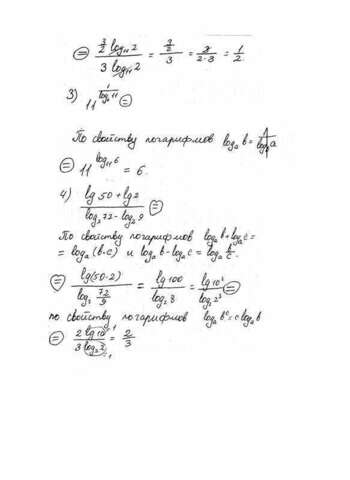 = (3/2 log₁₁ 2)/(3 log₁₁ 2) = (3/2)/3 = 3/(2·3) = 1/2
3) 11^(1/log₆ 11) =
По свойству логарифмов logₐ b = 1/log_b a
= 11^(log₁₁ 6) = 6.
4) (lg 50 + lg 2)/(log₂ 72 - log₂ 9) =
По свойству логарифмов logₐ b + logₐ c =
= logₐ (b·c) и logₐ b - logₐ c = logₐ b/c.
= lg(50·2)/(log₂ 72/9) = lg 100/log₂ 8 = lg 10²/log₂ 2³ =
по свойству логарифмов logₐ bᶜ = c logₐ b
= (2 lg 10)/(3 log₂ 2) = 2/3